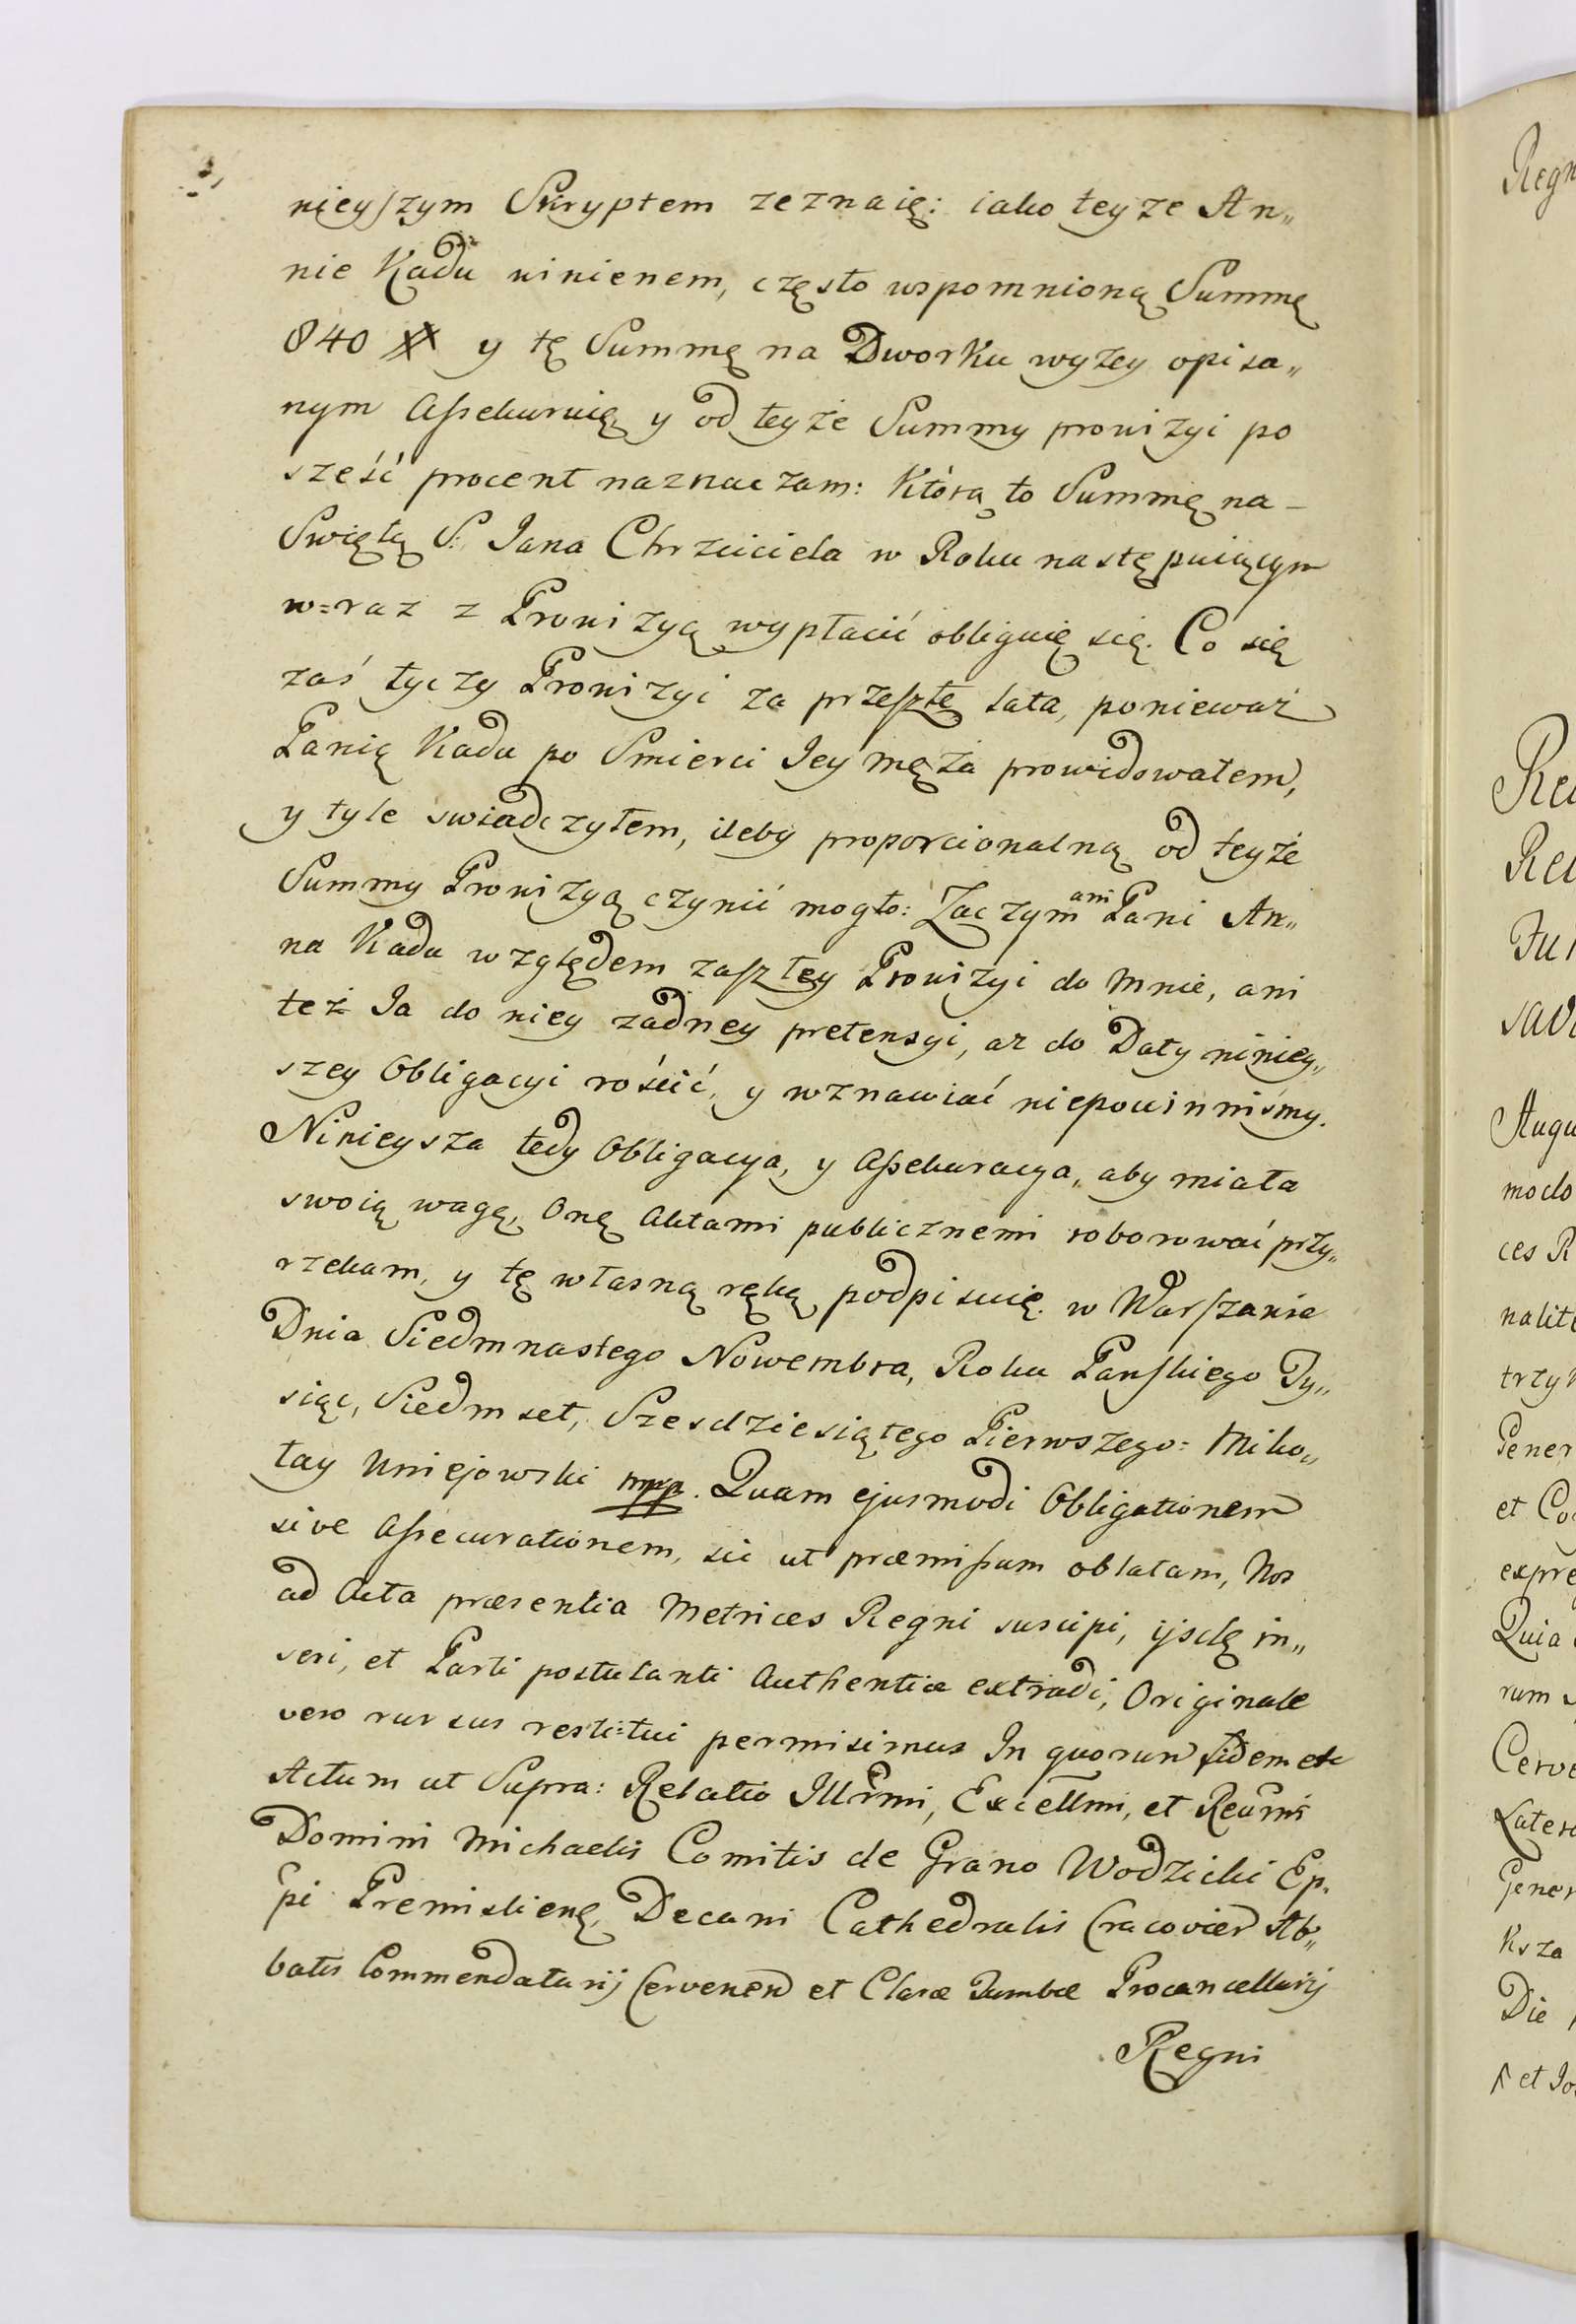 nięyszym Skryptem zeznaię: iako teyze An„
nie Kadu winienem, często wspomnioną Summę
840 xx y tę Summę na Dworku wyżey opisa„
nym Assekuruię, y od teyże Summy prowizyi po
sześć procent naznaczam: Którą to Summę na-
Swięty S: Jana Chrzciciela w Roku następuiącym
w=raz z Prowizyą wypłacić obliguię się. Co się
zaś tyczy Prowizyi za przeszłe lata, ponieważ
Panią Kadu po Smierci Jey męża prowidowałem,
y tyle swiadczyłem, ileby proporcionalną od teyże
Summy Prowizyą czynić mogło: Zaczym ani Pani An„
na Kadu względem zaszłey Prowizyi do mnie, ani
też Ja do niey zadney pretensyi, az do Daty niniey„
szey Obligacyi rościć, y wznawiać niepowinnismy.
Ninieysza tedy Obligacya, y Assekuracya, aby miała
swoią wagę, Onę Aktami publicznemi roborować przy„
rzekam, y tę własną ręką podpisuię. w Warszawie
Dnia Siedmnastego Nowembra, Roku Panskiego Ty„
siąc, Siedmset, Szesdziesiątego Pierwszego: Miko„
łay Uniejowski mpp. Quam ejusmodi Obligationem
sive Assecurationem, sic ut præmissum oblatam, Nos
ad Acta præsentia Metrices Regni suscipi, ijsdę in„
seri, et Parti postulanti Authentice extradi, Originale
vero rursus resti=tui permisimus In quorum fidem etc
Actum ut Supra: Relatio Illrmi, Excellmi, et Reumi
Domini Michaelis Comitis de Grano Wodzicki Ep„
pi Premislienę, Decani Cathedralis Cracovien Ab„
batis Commendatarij Cervenen et Claræ Tumbæ Procancellarij
Regni

Regn
Re
Re
Ju
sav
Augu
modo
ces R
nalit
trzy
Gener
et Co
expre
Quia
rum
Cerve
Later
Gener
Ksza
Die
et Jo